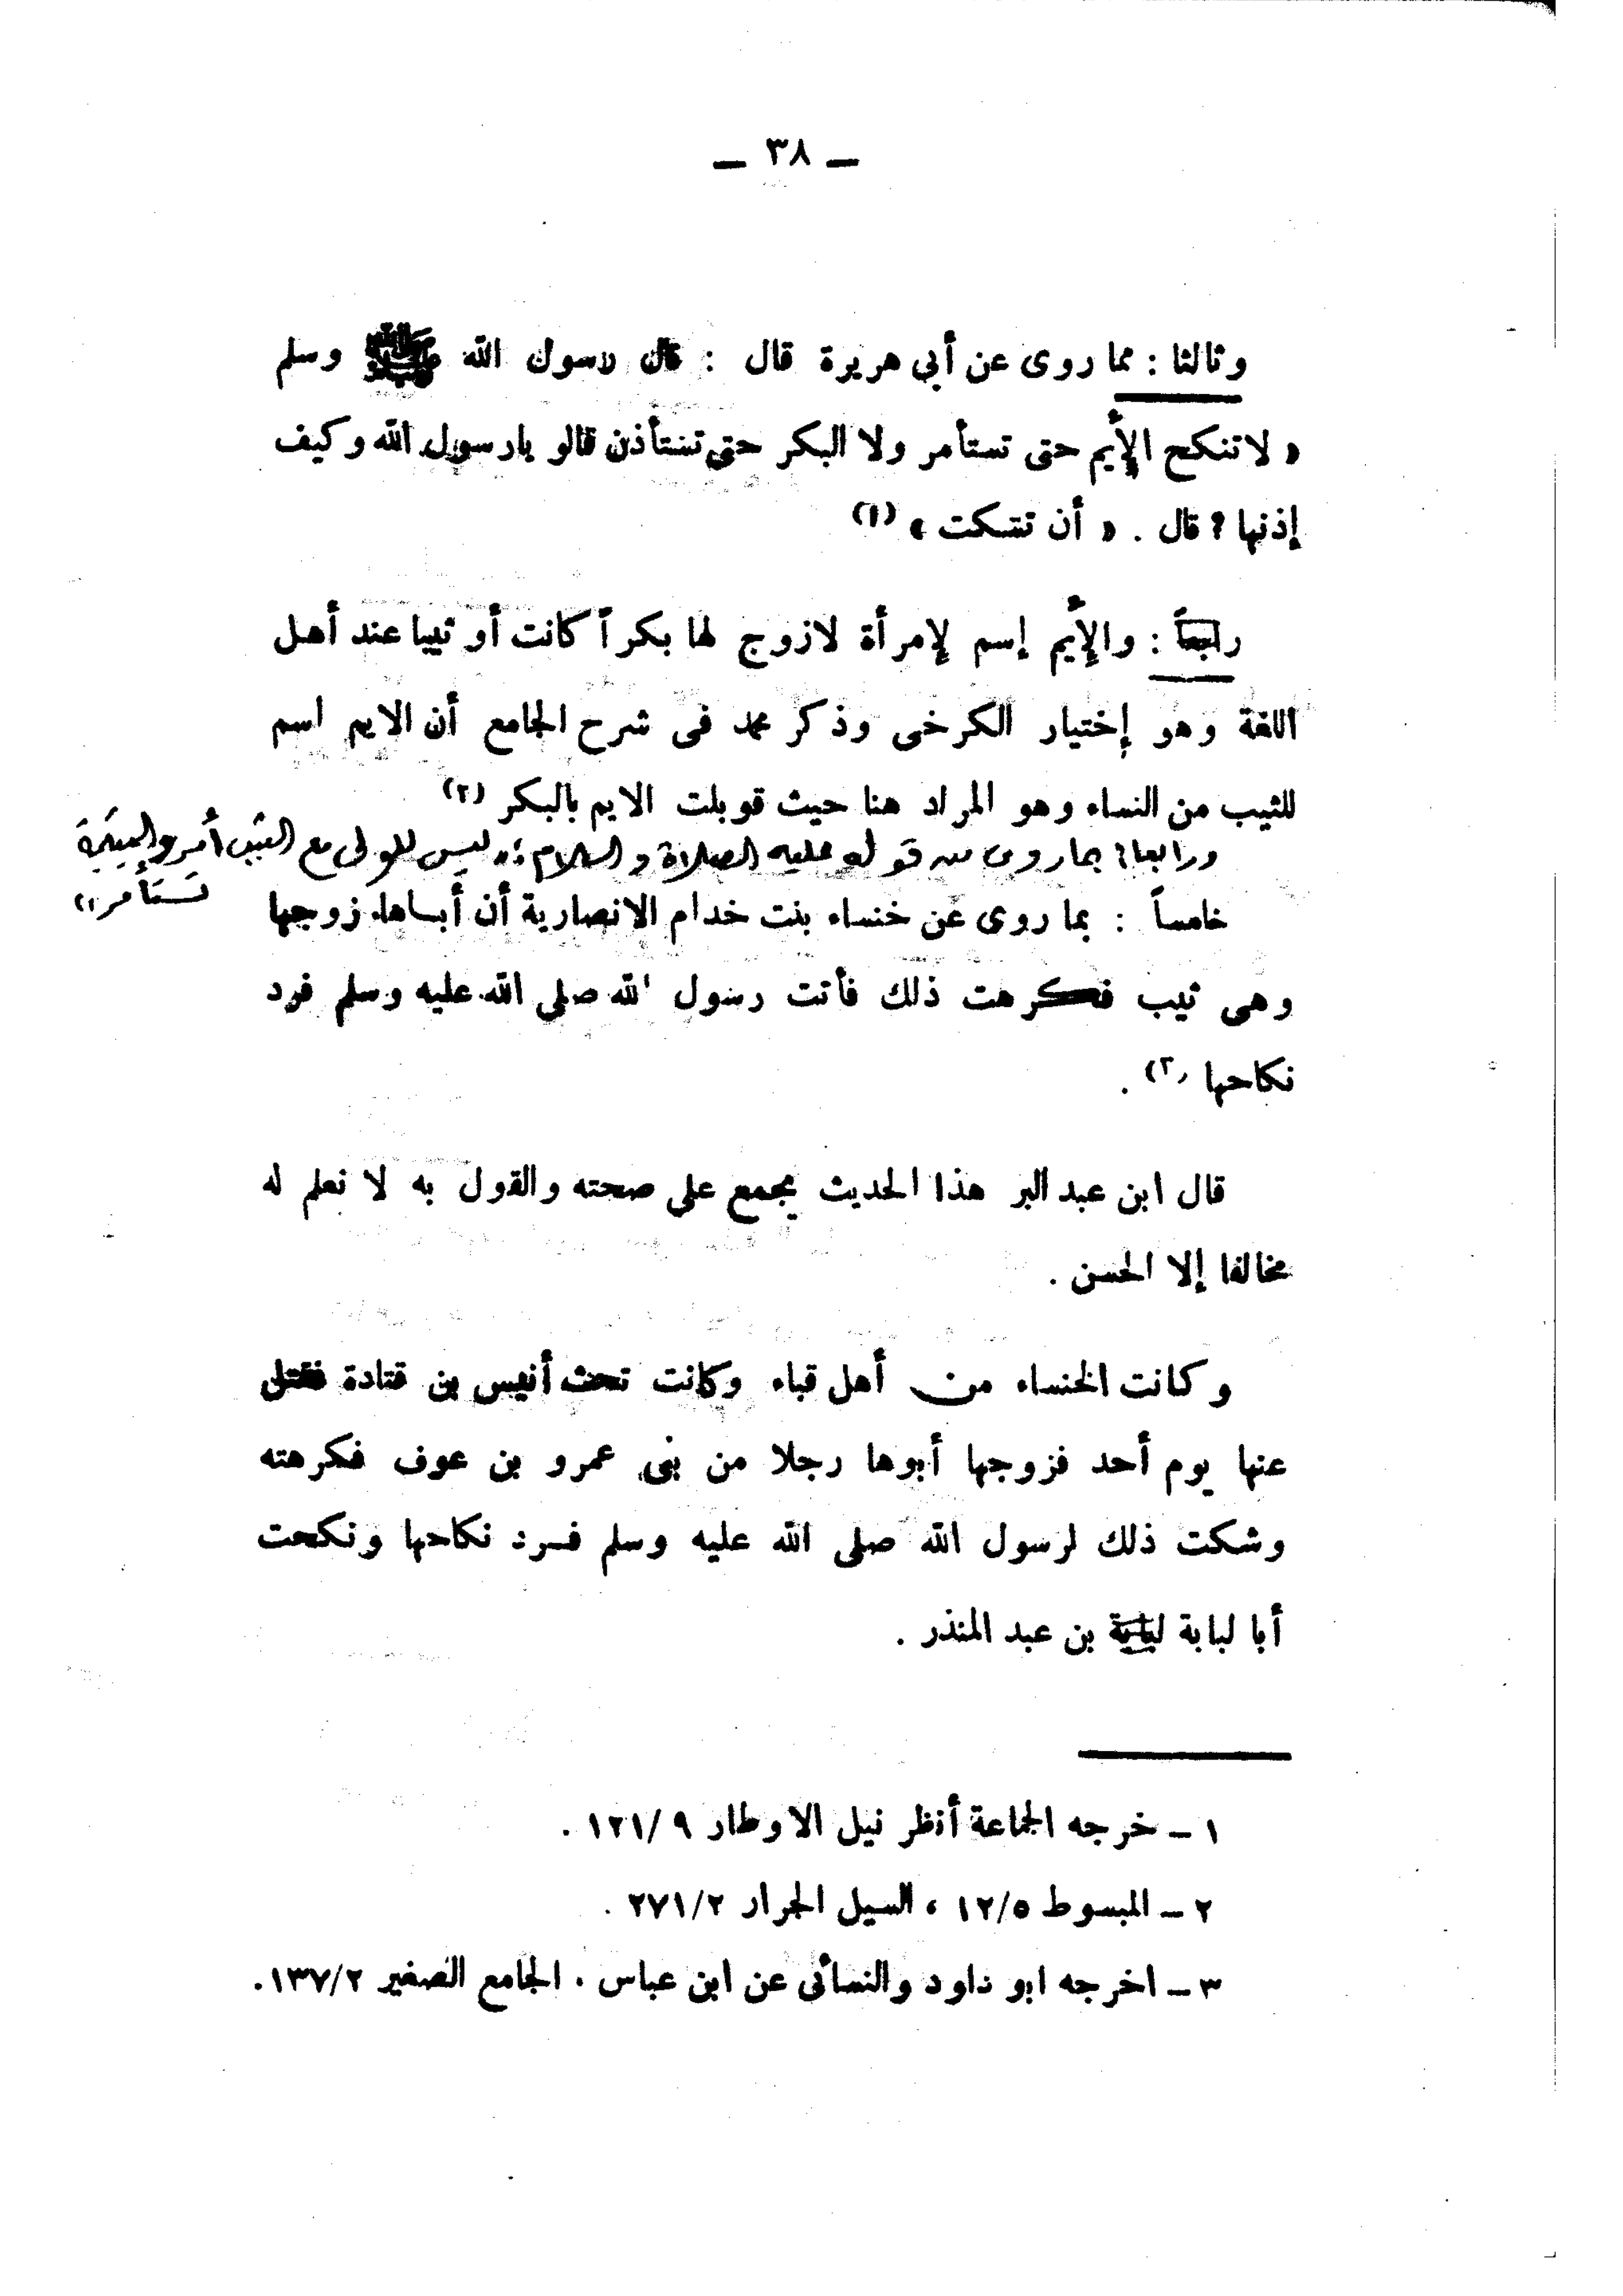 — ٣٨ —
وثالثا : مما روى عن أبي هريرة قال : قال رسول الله ﷺ وسلم
« لا تنكح الأيم حتى تستأمر ولا البكر حتى تستأذن قالو يارسول الله وكيف
إذنها ؟ قال . « أن تسكت » (١)
رابعاً : والأيم إسم لإمرأة لازوج لها بكراً كانت أو ثيبا عند أهل
اللغة وهو إختيار الكرخى وذكر محمد فى شرح الجامع أن الايم اسم
للثيب من النساء وهو المراد هنا حيث قوبلت الايم بالبكر (٢)
ورابعا : بما روى من قوله عليه الصلاة والسلام : « ليس للولى مع الثيب أمر واليتيمة
تستأمر (١)
خامساً : بما روى عن خنساء بنت خدام الانصارية أن أباها زوجها
وهى ثيب فكرهت ذلك فأتت رسول الله صلى الله عليه وسلم فرد
نكاحها (٣) .
قال ابن عبد البر هذا الحديث مجمع على صحته والقول به لا نعلم له
مخالفا إلا الحسن .
وكانت الخنساء من أهل قباء وكانت تحت أنيس بن قتادة فقتل
عنها يوم أحد فزوجها أبوها رجلا من بنى عمرو بن عوف فكرهته
وشكت ذلك لرسول الله صلى الله عليه وسلم فرد نكاحها ونكحت
أبا لبابة لبابة بن عبد المنذر .
١ – خرجه الجماعة أنظر نيل الاوطار ٩/١٢١ .
٢ – المبسوط ١٢/٥ ، السيل الجرار ٢٧١/٢ .
٣ – اخرجه ابو داود والنسائى عن ابن عباس . الجامع الصغير ١٣٧/٢.